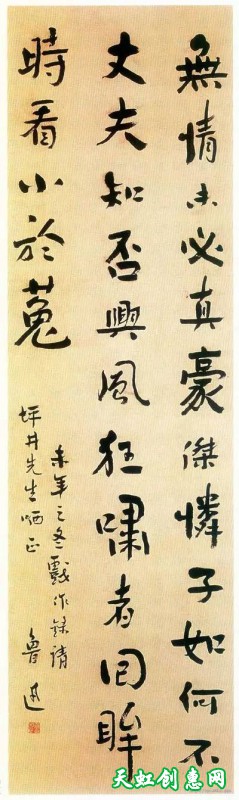 無情未必真豪傑憐子如何不
丈夫知否興風狂嘯者回眸
時看小於菟
未年之冬戲作錄請
坪井先生哂正
魯迅
天虹创惠网